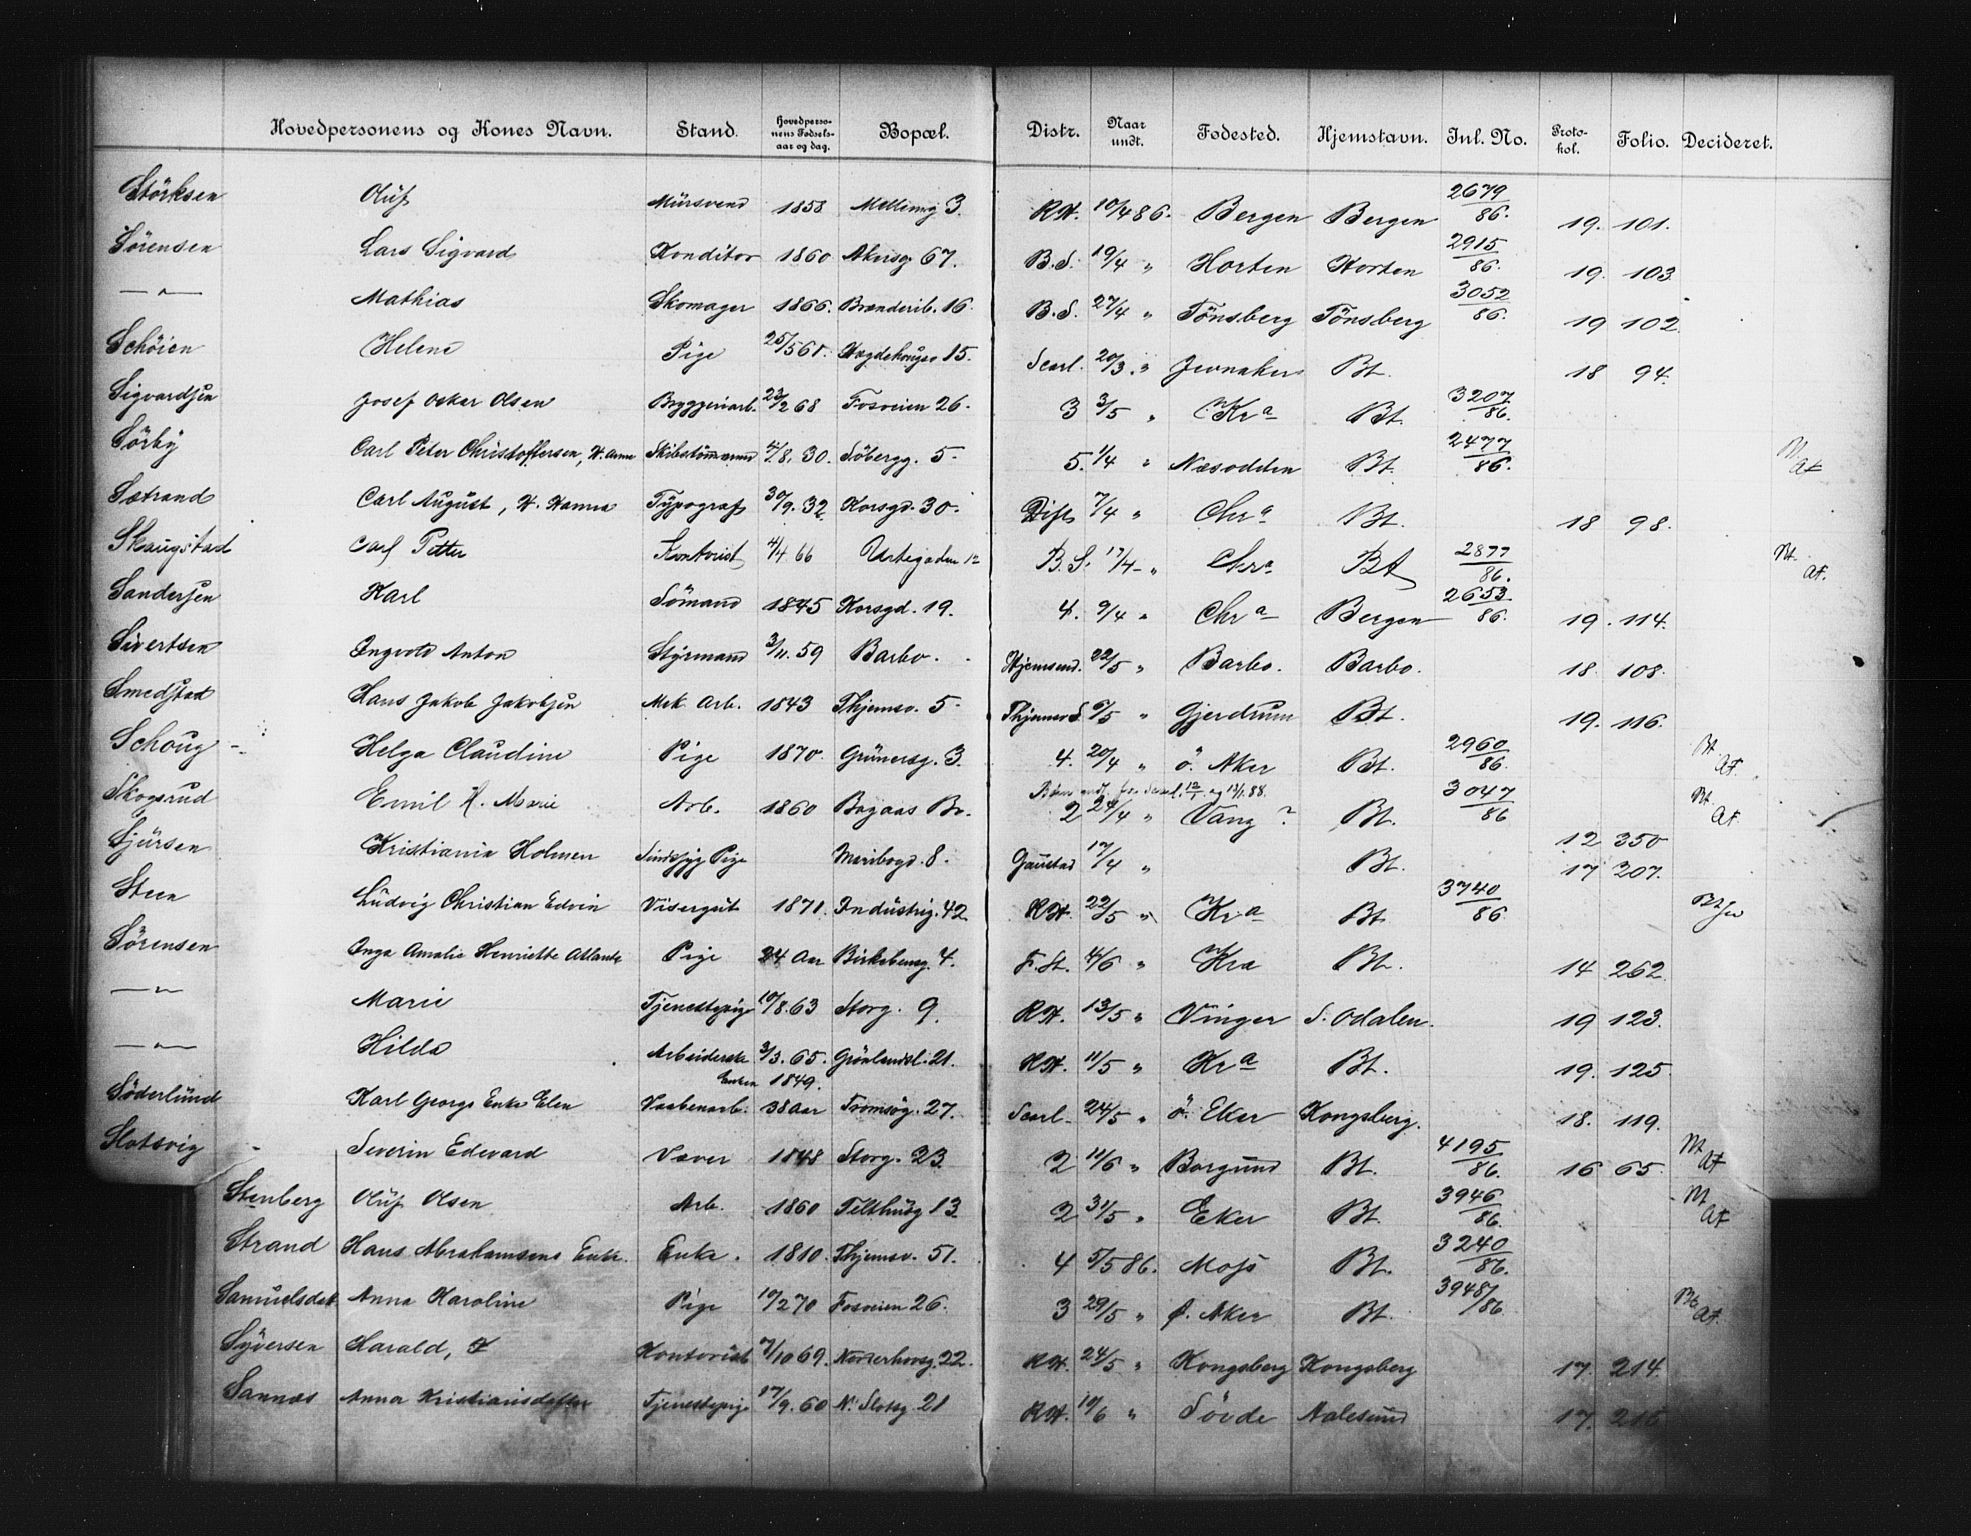 Hovedpersonens og Kones Navn. Stand. Hovedpersonens Fødselsaar og dag. Bopæl. Distr. Naar undt. Fødested. Hjemstavn. Inl. No. Protokol. Folio. Decideret.
Störksen Oluf Mursvend 1858 3. RH. 10/4 86. Bergen Bergen 2679/86. 19. 101.
Sørensen Lars Sigvard Konditor 1860 Akersg 67. B.S. 19/4 " Horten Horten 2915/86. 19. 103
—"— Mathias Skomager 1866. Brænderib. 16. B.S. 27/4 " Tönsberg Tönsberg 3052/86. 19 102
Schöien Helene Pige 25/5 61. 15. Scarl. 20/3. " Jevnaker Bt. 18 94.
Sigvardsen Josef Oskar Olsen Bryggeriarb. 23/2 68 Fosveien 26. 3 3/5 " Kra Bt. 3207/86.
Sörby Carl Peter Christoffersen, H. Anna Skibstømmermd 4/8. 30. Söbergg. 5. 5. 1/4 " Næsodden Bt. 2477/86. Bt. Af
Sætrand Carl August, H. Hanna Typograf 30/9. 32. Korsgd. 30. 7/4 " Chra Bt. 18 98.
Skaugstad Carl Petter Kontorist 4/4 66 Urtegaden B.S. 17/4 " Chra Bt 2877/86. Bt. Af.
Sandersen Karl Sömand 1845 Korsgd. 19. 4. 9/4 " Chra Bergen 2653/86. 19. 114.
Sivertsen Ingvold Anton Styrmand 3/11. 59 Barbo. Hjemsend. 22/5 " Barbo. Barbo. 18. 108.
Smedstad Hans Jakob Jakobsen Mek. Arb. 1843 Thjemsv. 5. Thjemsv S. 6/5 " Gjerdrum Bt. 19. 116.
Schoug Helga Claudine Pige 1870. Grünersg. 3. 4. 20/4 " Ö. Aker Bt. 2960/86. Bt. Af.
Skogsrud Emil H. Marie Arb. 1860 Bogaas Br. 2 24/4 " Vang ? Bt. 3047/86 Bt. Af.
12 350
Sjursen Kristiania Holmen Sindssyg Pige Maribogd. 8. Gaustad 17/4 " Bt. 17 207.
Steen Ludvig Christian Edvin Visergut 1871. Industrig. 42 RH. 22/5 " Kra Bt 3740/86. Bt
Sörensen Inga Amalie Henriette Atlanta Pige 24 Aar Birkebeng. 4. F. St. 4/6 " Kra Bt. 14 262.
—"— Marie Tjenestepige 10/8. 63 Storg. 9. RH. 13/5 " Vinger S. Odalen. 19 123.
—"— Hilda Arbeiderske 3/3. 65. Grönlandsl. 21. RH. 11/5 " Kra Bt. 19. 125.
Enken 1849.
Söderlund Karl Georgs Enke Elen Vaabenarb. 38 Aar Tromsög. 27. Scarl. 24/5 " Ö. Eker Kongsberg. 18. 119.
Slotsvig Severin Edevard Væver 1848 Storg. 23. 2 11/6 " Borgund Bt. 4195/86. 16 65. Bt Af
Stenberg Oluf Olsen Arb. 1860 Telthusg 13 2 31/5 " Eker Bt. 3946/86. Bt. Af
Strand Hans Abrahamsens Enke. Enke. 1810. Thjemsv. 51. 4 5/5 86. Moss Bt. 3240/86.
Samuelsdat. Anna Karoline Pige 10/2 70 Fosveien 26. 3 29/5 " Ø. Aker Bt. 3948/86. Bt. Af.
Syversen Harald, Kontorist 7/10 69. 22. RH. 24/5 " Kongsberg Kongsberg 17. 214.
Sannæs Anna Kristiansdatter Tjenestepige 17/9. 60 N. Slotsg. 21 RH. 10/6 " Søvde Aalesund 17.